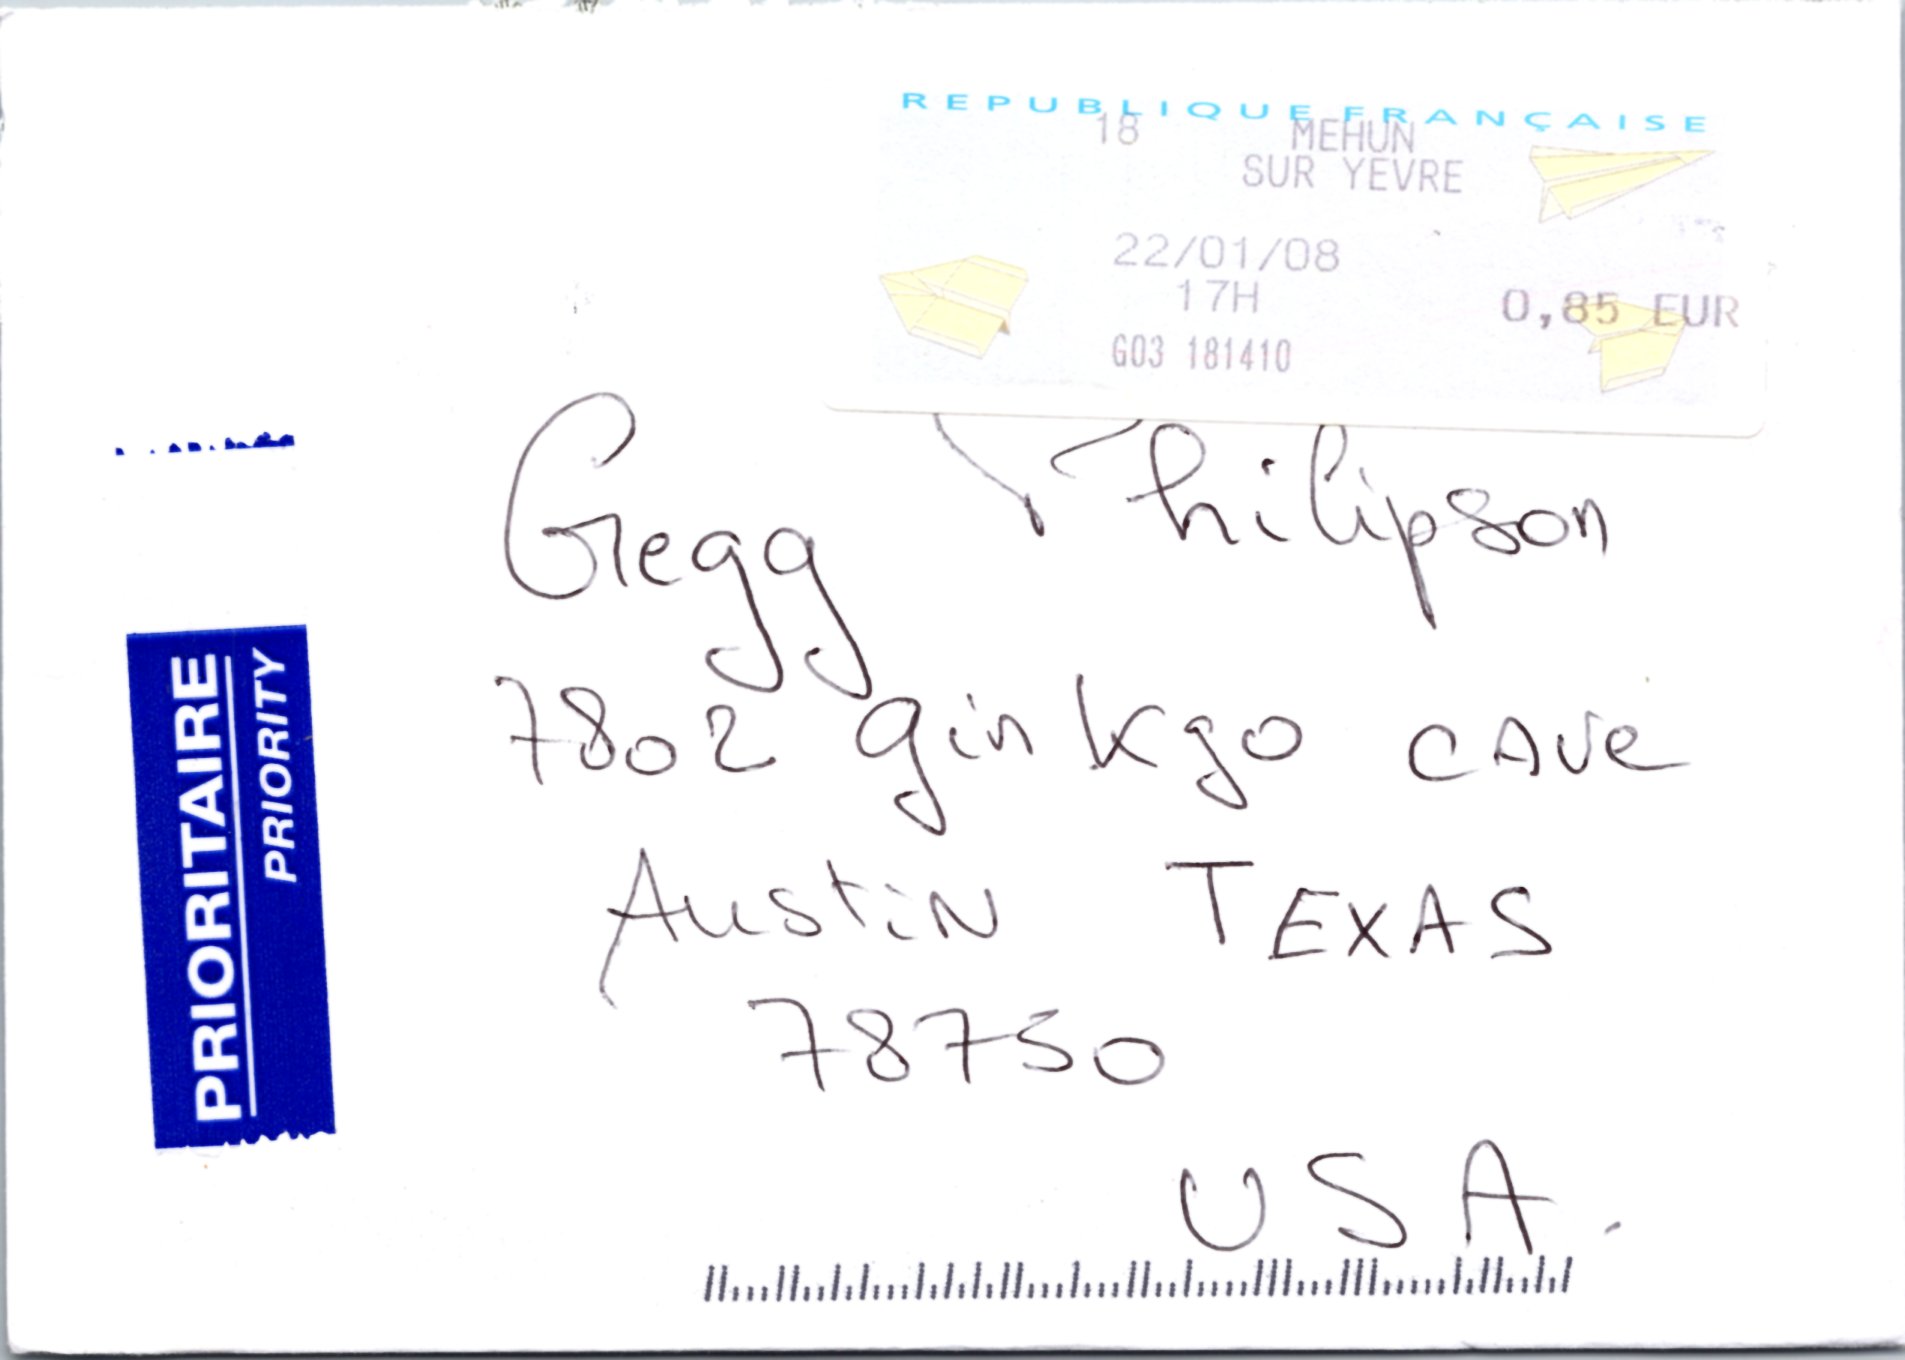 REPUBLIQUE FRANÇAISE
18 MEHUN
SUR YEVRE
22/01/08
17H
0,85 EUR
G03 181410
PRIORITAIRE
PRIORITY
Gregg Philipson
7802 ginkgo cave
Austin TEXAS
78750
USA.